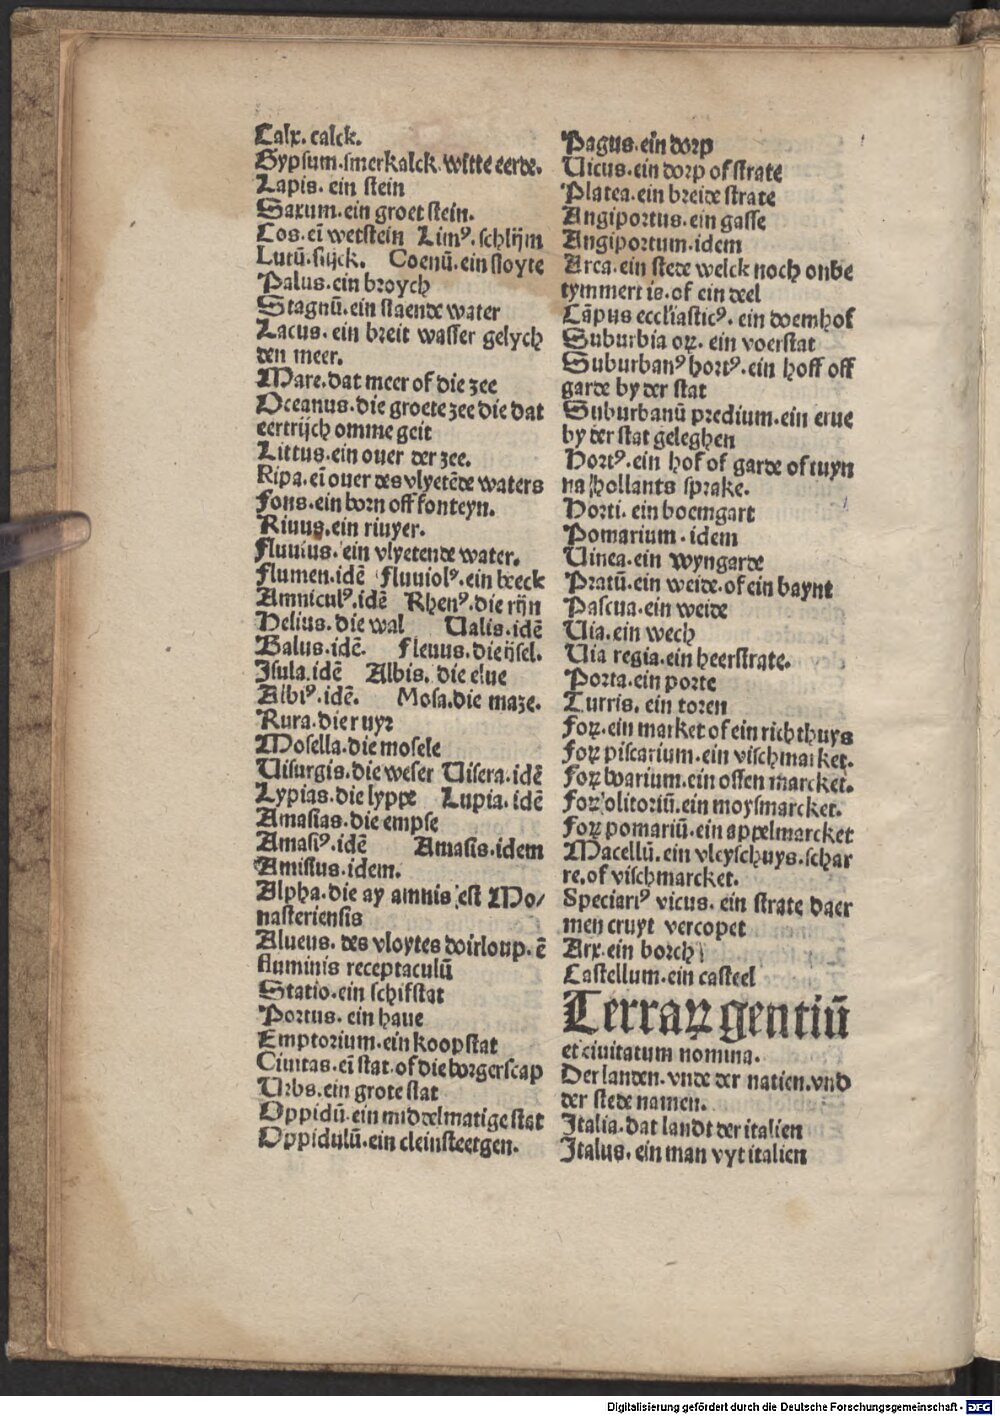 Calx. calck.
Gypsum. smerkalck. witte eerde.
Lapis. ein stein
Saxum. ein groet stein.
Cos. eī wetstein Limꝰ. schlijm
Lutū. slijck. Coenū. ein sloyte
Palus. ein broych
Stagnū. ein staende water
Lacus. ein breit wasser gelych
den meer.
Mare. dat meer of die zee
Oceanus. die groete zee die dat
eertrijch omme geit
Littus. ein ouer der zee.
Ripa. eī ouer des vlyetēde waters
Fons. ein born off fonteyn.
Riuus. ein riuyer.
Fluuius. ein vlyetende water.
Flumen. idē Fluuiolꝰ. ein beeck
Amniculꝰ. idē Rhenꝰ. die rijn
Helius. die wal Valis. idē
Balus. idē. Fleuus. die ijsel.
Isula. idē Albis. die elue
Albiꝰ. idē. Mosa. die maze.
Rura. die ruyr
Mosella. die mosele
Visurgis. die weser Visera. idē
Lypias. die lyppe Lupia. idē
Amasias. die empse
Amasiꝰ. idē Amasis. idem
Amisius. idem.
Alpha. die ay amnis est Mo/
nasteriensis
Alueus. des vloytes doirloup. ē
fluminis receptaculū
Statio. ein schifstat
Portus. ein haue
Emptorium. ein koopstat
Ciuitas. eī stat. of die borgerscap
Vrbs. ein grote stat
Oppidū. ein middelmatige stat
Oppidulū. ein cleinsteetgen.
Pagus. ein dorp
Vicus. ein dorp of strate
Platea. ein breide strate
Angiportus. ein gasse
Angiportum. idem
Area. ein stede welck noch onbe
tymmert is. of ein deel
Cāpus ecclīasticꝰ. ein doemhof
Suburbia oꝝ. ein voerstat
Suburbanꝰ hortꝰ. ein hoff off
garde by der stat
Suburbanū predium. ein erue
by der stat geleghen
Hortꝰ. ein hof of garde of tuyn
na hollants sprake.
Horti. ein boemgart
Pomarium. idem
Vinea. ein wyngarde
Pratū. ein weide. of ein baynt
Pascua. ein weide
Via. ein wech
Via regia. ein heerstrate.
Porta. ein porte
Turris. ein toren
Foꝝ. ein market of ein richthuys
Foꝝ piscarium. ein vischmarket.
Foꝝ boarium. ein ossen marcket.
Foꝝ olitoriū. ein moysmarcket.
Foꝝ pomariū. ein appelmarcket
Macellū. ein vleyschuys. schar
re. of vischmarcket.
Speciariꝰ vicus. ein strate daer
men cruyt vercopet
Arx. ein borch
Castellum. ein casteel
Terraꝝ gentiū
et ciuitatum nomina.
Der landen. vnde der natien. vnd
der stede namen.
Italia. dat landt der italien
Italus. ein man vyt italien
Digitalisierung gefördert durch die Deutsche Forschungsgemeinschaft - DFG